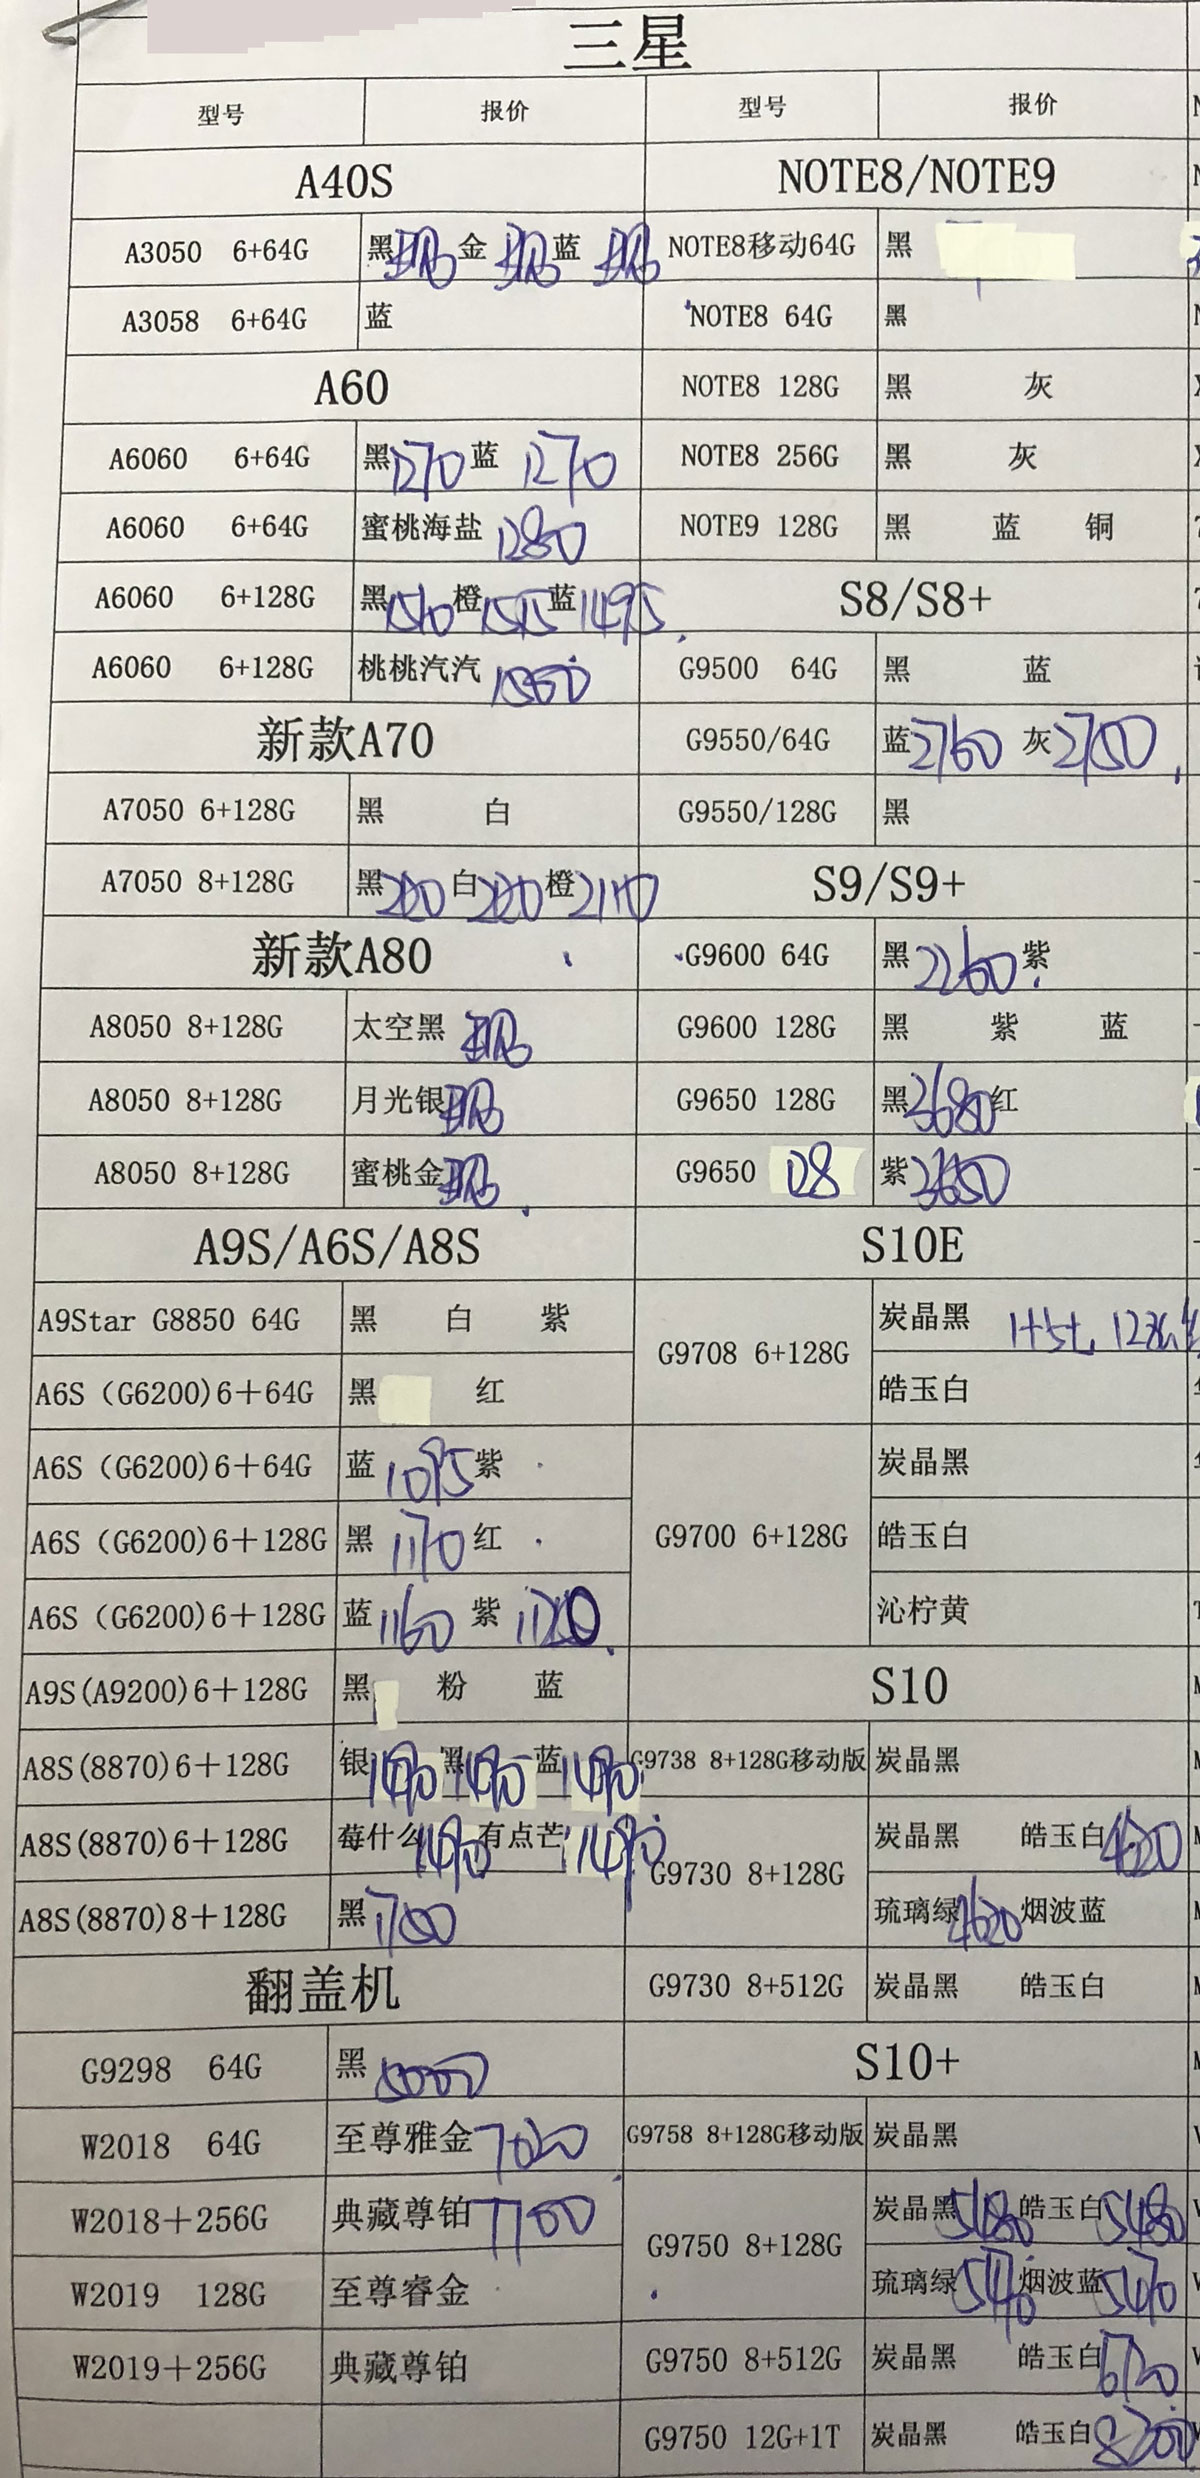 三星
型号 报价 型号 报价
A40S NOTE8/NOTE9
A3050 6+64G 黑 金 蓝 NOTE8移动64G 黑
A3058 6+64G 蓝 NOTE8 64G 黑
A60 NOTE8 128G 黑 灰
A6060 6+64G 黑1270 蓝 1270 NOTE8 256G 黑 灰
A6060 6+64G 蜜桃海盐 1280 NOTE9 128G 黑 蓝 铜
A6060 6+128G 黑1510 橙1515 蓝1495 S8/S8+
A6060 6+128G 桃桃汽汽 G9500 64G 黑 蓝
新款A70 G9550/64G 蓝2760 灰2750
A7050 6+128G 黑 白 G9550/128G 黑
A7050 8+128G 黑 白 橙2110 S9/S9+
新款A80 G9600 64G 黑2260 紫
A8050 8+128G 太空黑 G9600 128G 黑 紫 蓝
A8050 8+128G 月光银 G9650 128G 黑3680 红
A8050 8+128G 蜜桃金 G9650 128 紫3650
A9S/A6S/A8S S10E
A9Star G8850 64G 黑 白 紫 G9708 6+128G 炭晶黑
A6S（G6200)6+64G 黑 红 皓玉白
A6S（G6200)6+64G 蓝 1095 紫 G9700 6+128G 炭晶黑
A6S（G6200)6+128G 黑 1170 红 皓玉白
A6S（G6200)6+128G 蓝 1160 紫 沁柠黄
A9S(A9200)6+128G 黑 粉 蓝 S10
A8S(8870)6+128G 银1490 黑1490 蓝1490 G9738 8+128G移动版 炭晶黑
A8S(8870)6+128G 莓什么1490 有点芒1490 G9730 8+128G 炭晶黑 皓玉白4620
A8S(8870)8+128G 黑1700 琉璃绿4620 烟波蓝
翻盖机 G9730 8+512G 炭晶黑 皓玉白
G9298 64G 黑 S10+
W2018 64G 至尊雅金 G9758 8+128G移动版 炭晶黑
W2018+256G 典藏尊铂7700 G9750 8+128G 炭晶黑5480 皓玉白5480
W2019 128G 至尊睿金 琉璃绿5470 烟波蓝5470
W2019+256G 典藏尊铂 G9750 8+512G 炭晶黑 皓玉白
G9750 12G+1T 炭晶黑 皓玉白